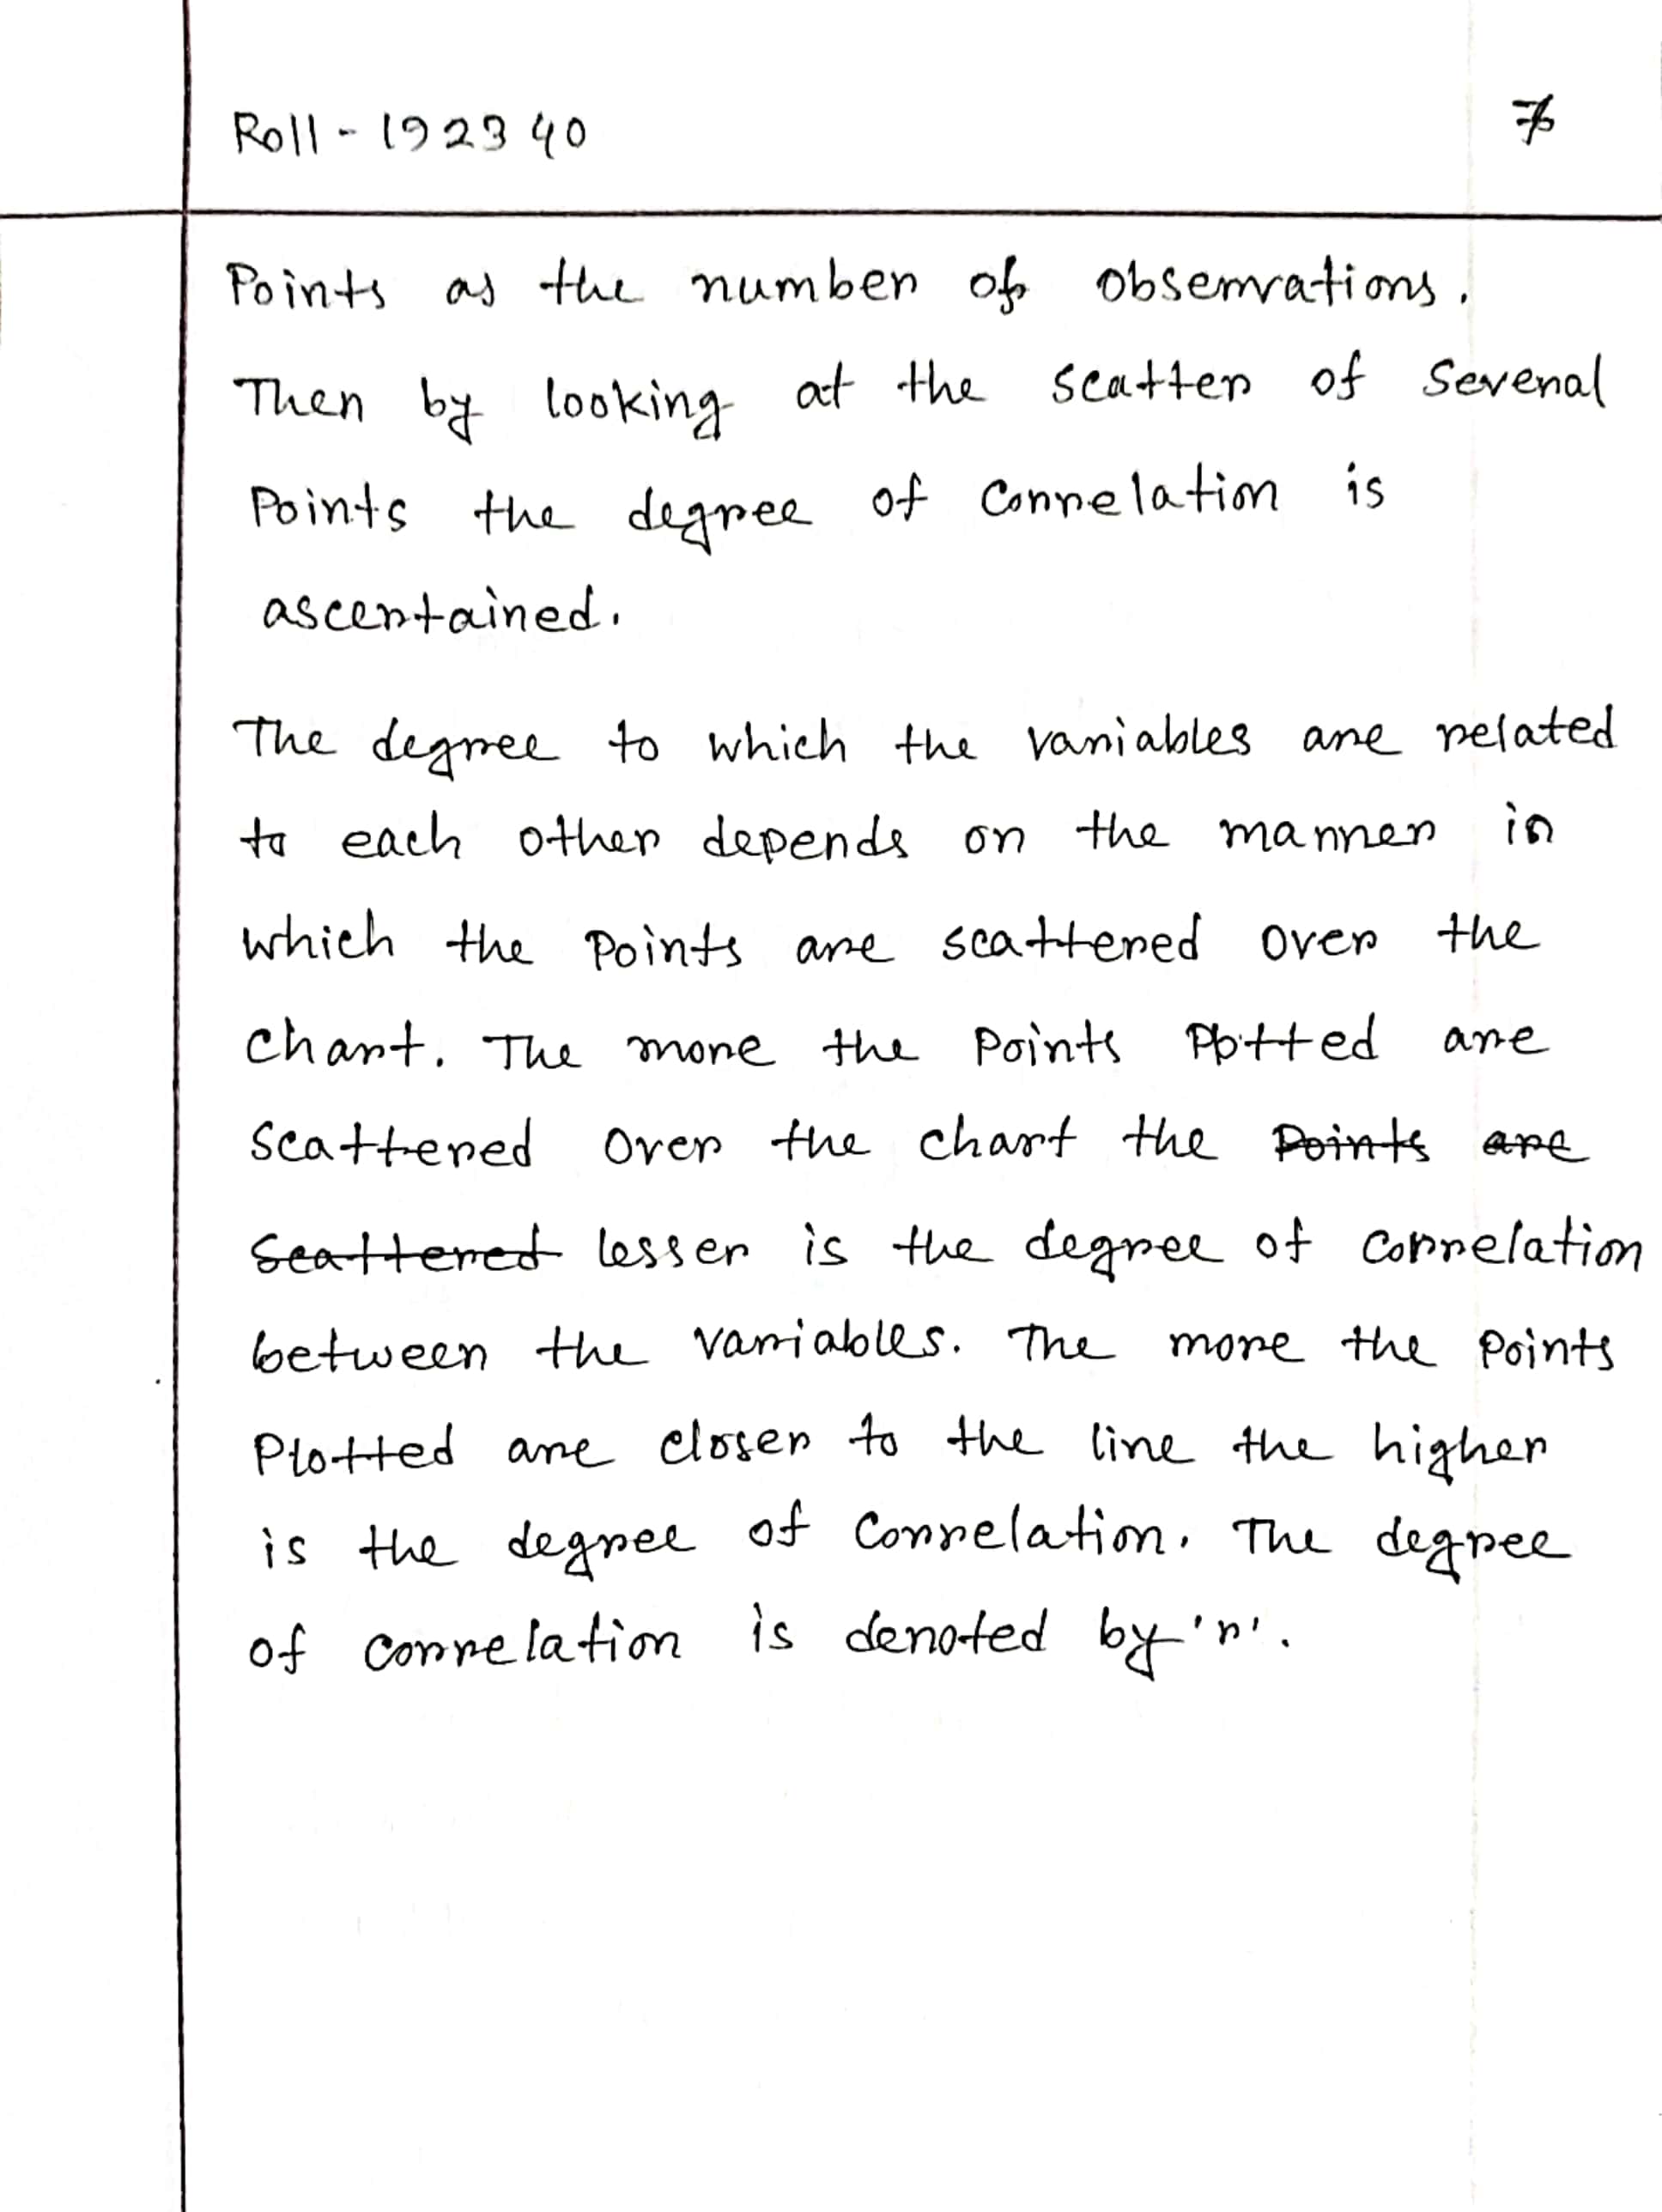 Roll - 192340
Points as the number of observations.
Then by looking at the scatter of several
Points the degree of correlation is
ascertained.
The degree to which the variables are related
to each other depends on the manner in
which the points are scattered over the
chart. The more the points Plotted are
scattered over the chart the points are
scattered lesser is the degree of correlation
between the variables. The more the points
Plotted are closer to the line the higher
is the degree of correlation. The degree
of correlation is denoted by 'r'.